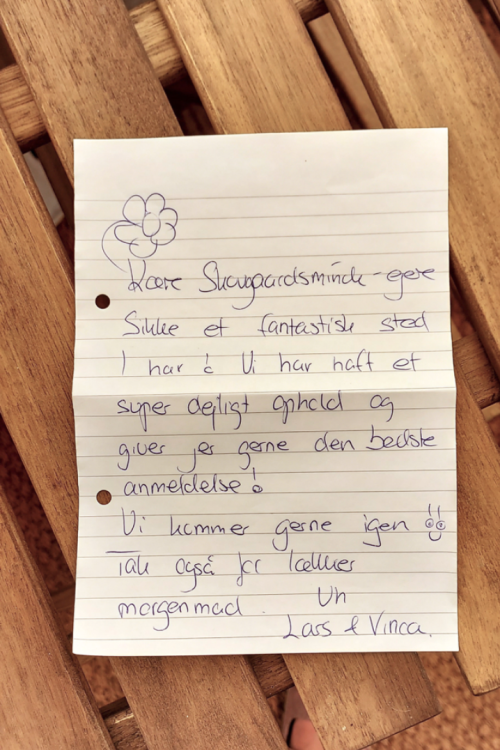 Kære Skovgaardsminde-ejere
Sikke et fantastisk sted
I har & Vi har haft et
super dejligt ophold og
giver jer gerne den bedste
anmeldelse!
Vi kommer gerne igen !!
Tak også for lækker
morgenmad. Vh
Lars & Vinca.